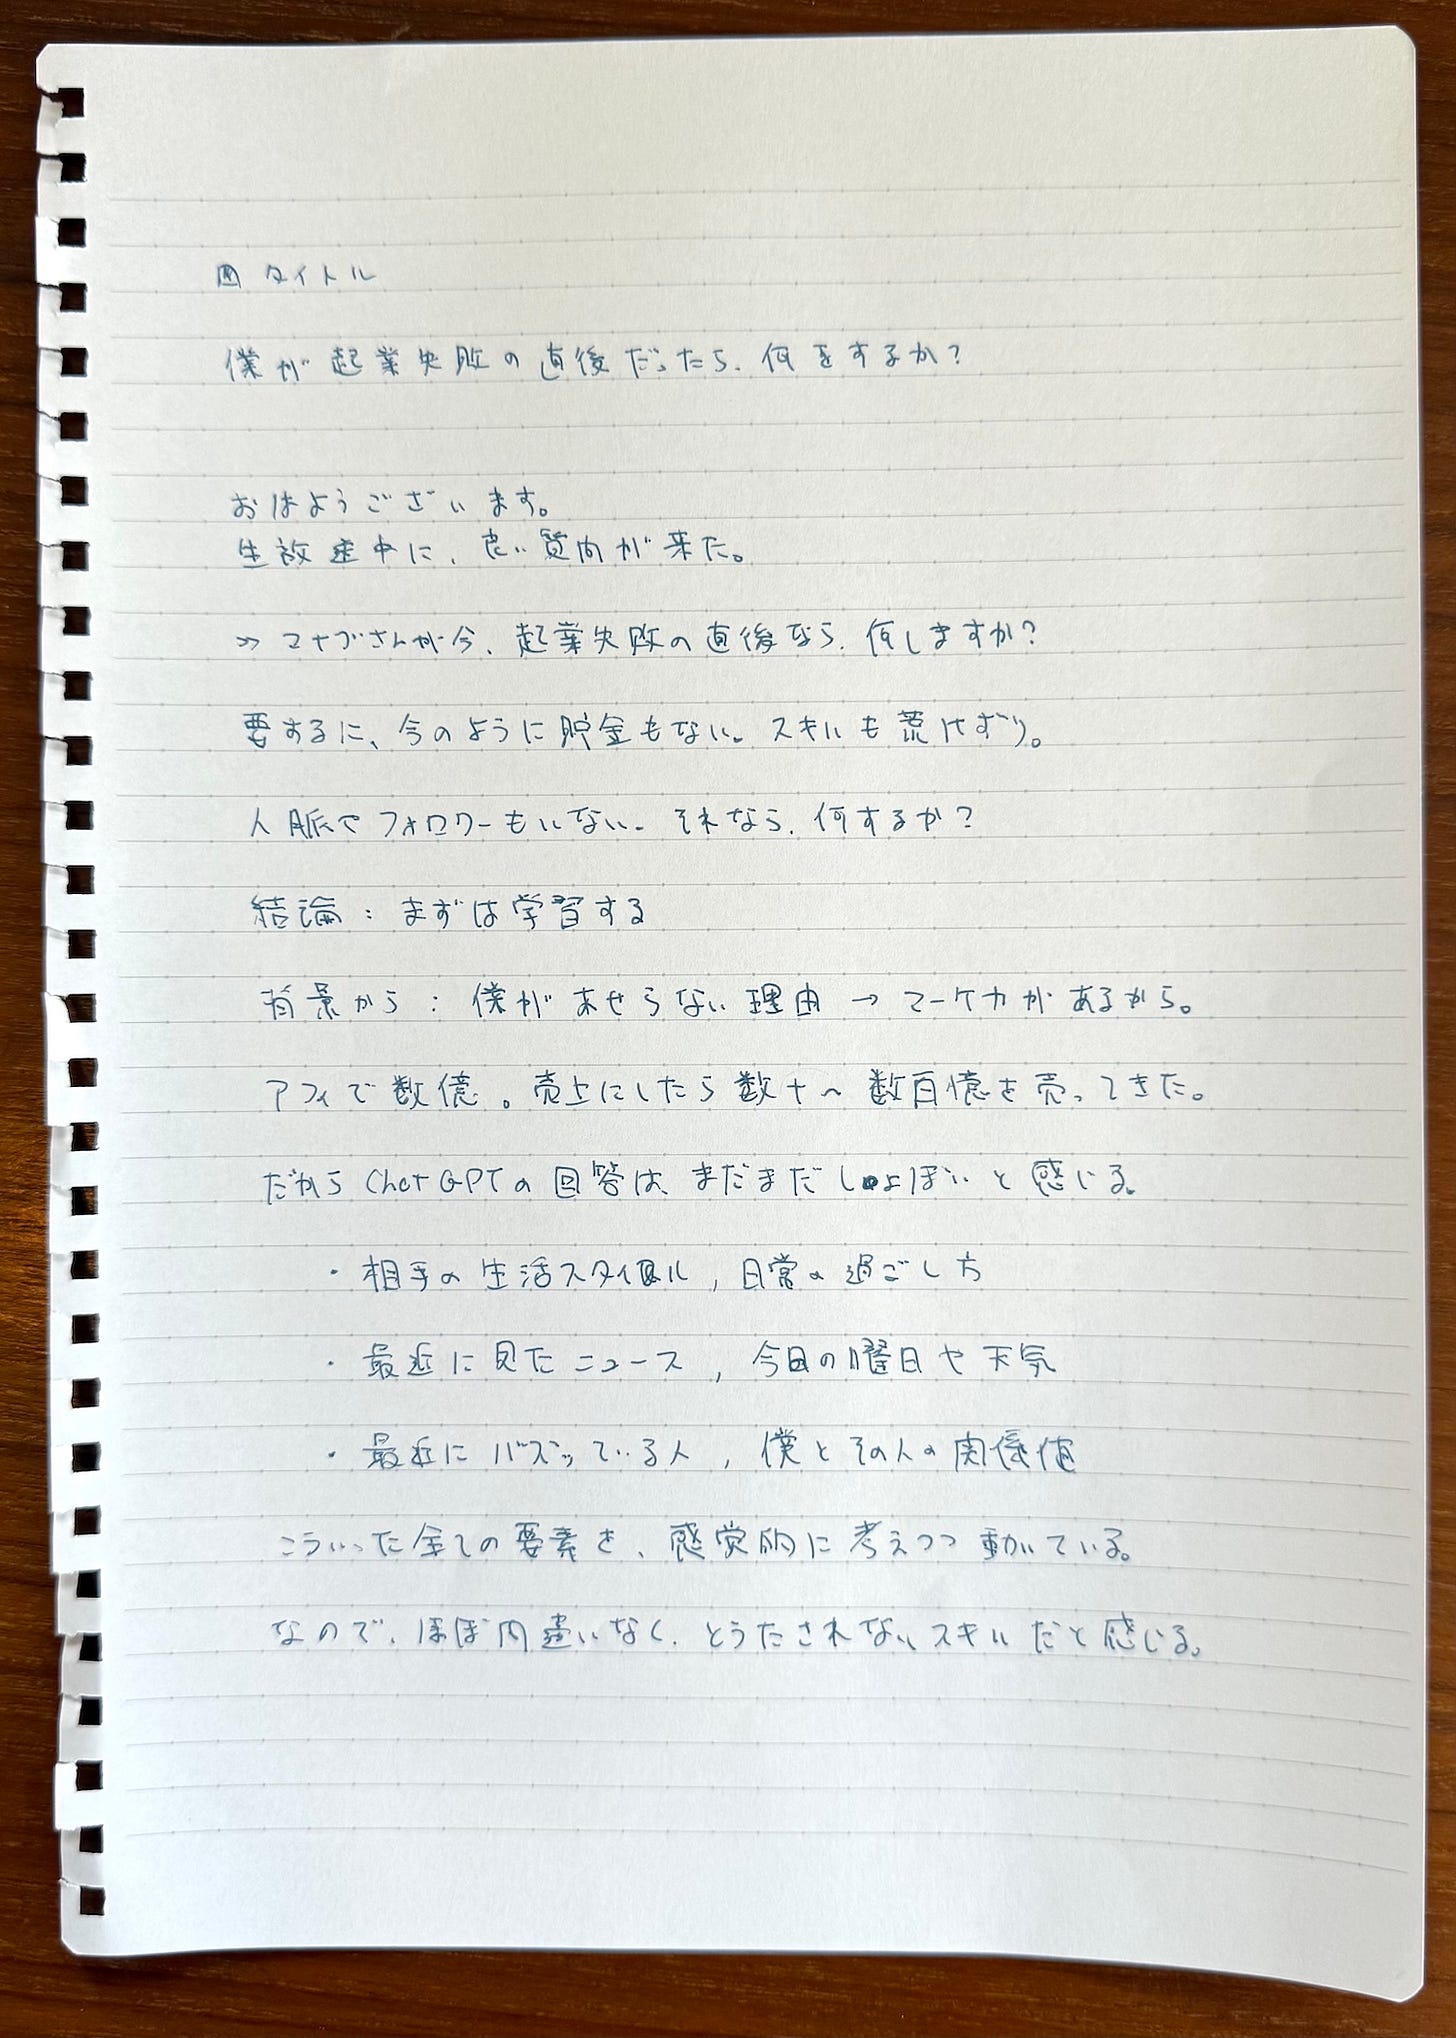 タイトル
僕が起業失敗の直後だったら、何をするか?
おはようございます。
生放送中に、良い質問が来た。
≫ マナブさんが今、起業失敗の直後なら、何しますか?
要するに、今のように貯金もない。スキルも荒けずり。
人脈やフォロワーもいない。それなら、何するか?
結論:まずは学習する
背景から:僕があせらない理由 → マーケ力があるから。
アフィで数億。売上にしたら数十〜数百億を売ってきた。
だからChatGPTの回答は、まだまだしょぼいと感じる。
・相手の生活スタイル,日常の過ごし方
・最近に見たニュース,今日の曜日や天気
・最近にバズっている人,僕とその人の関係値
こういった全ての要素を、感覚的に考えつつ動いている。
なので、ほぼ間違いなく、とうたされないスキルだと感じる。